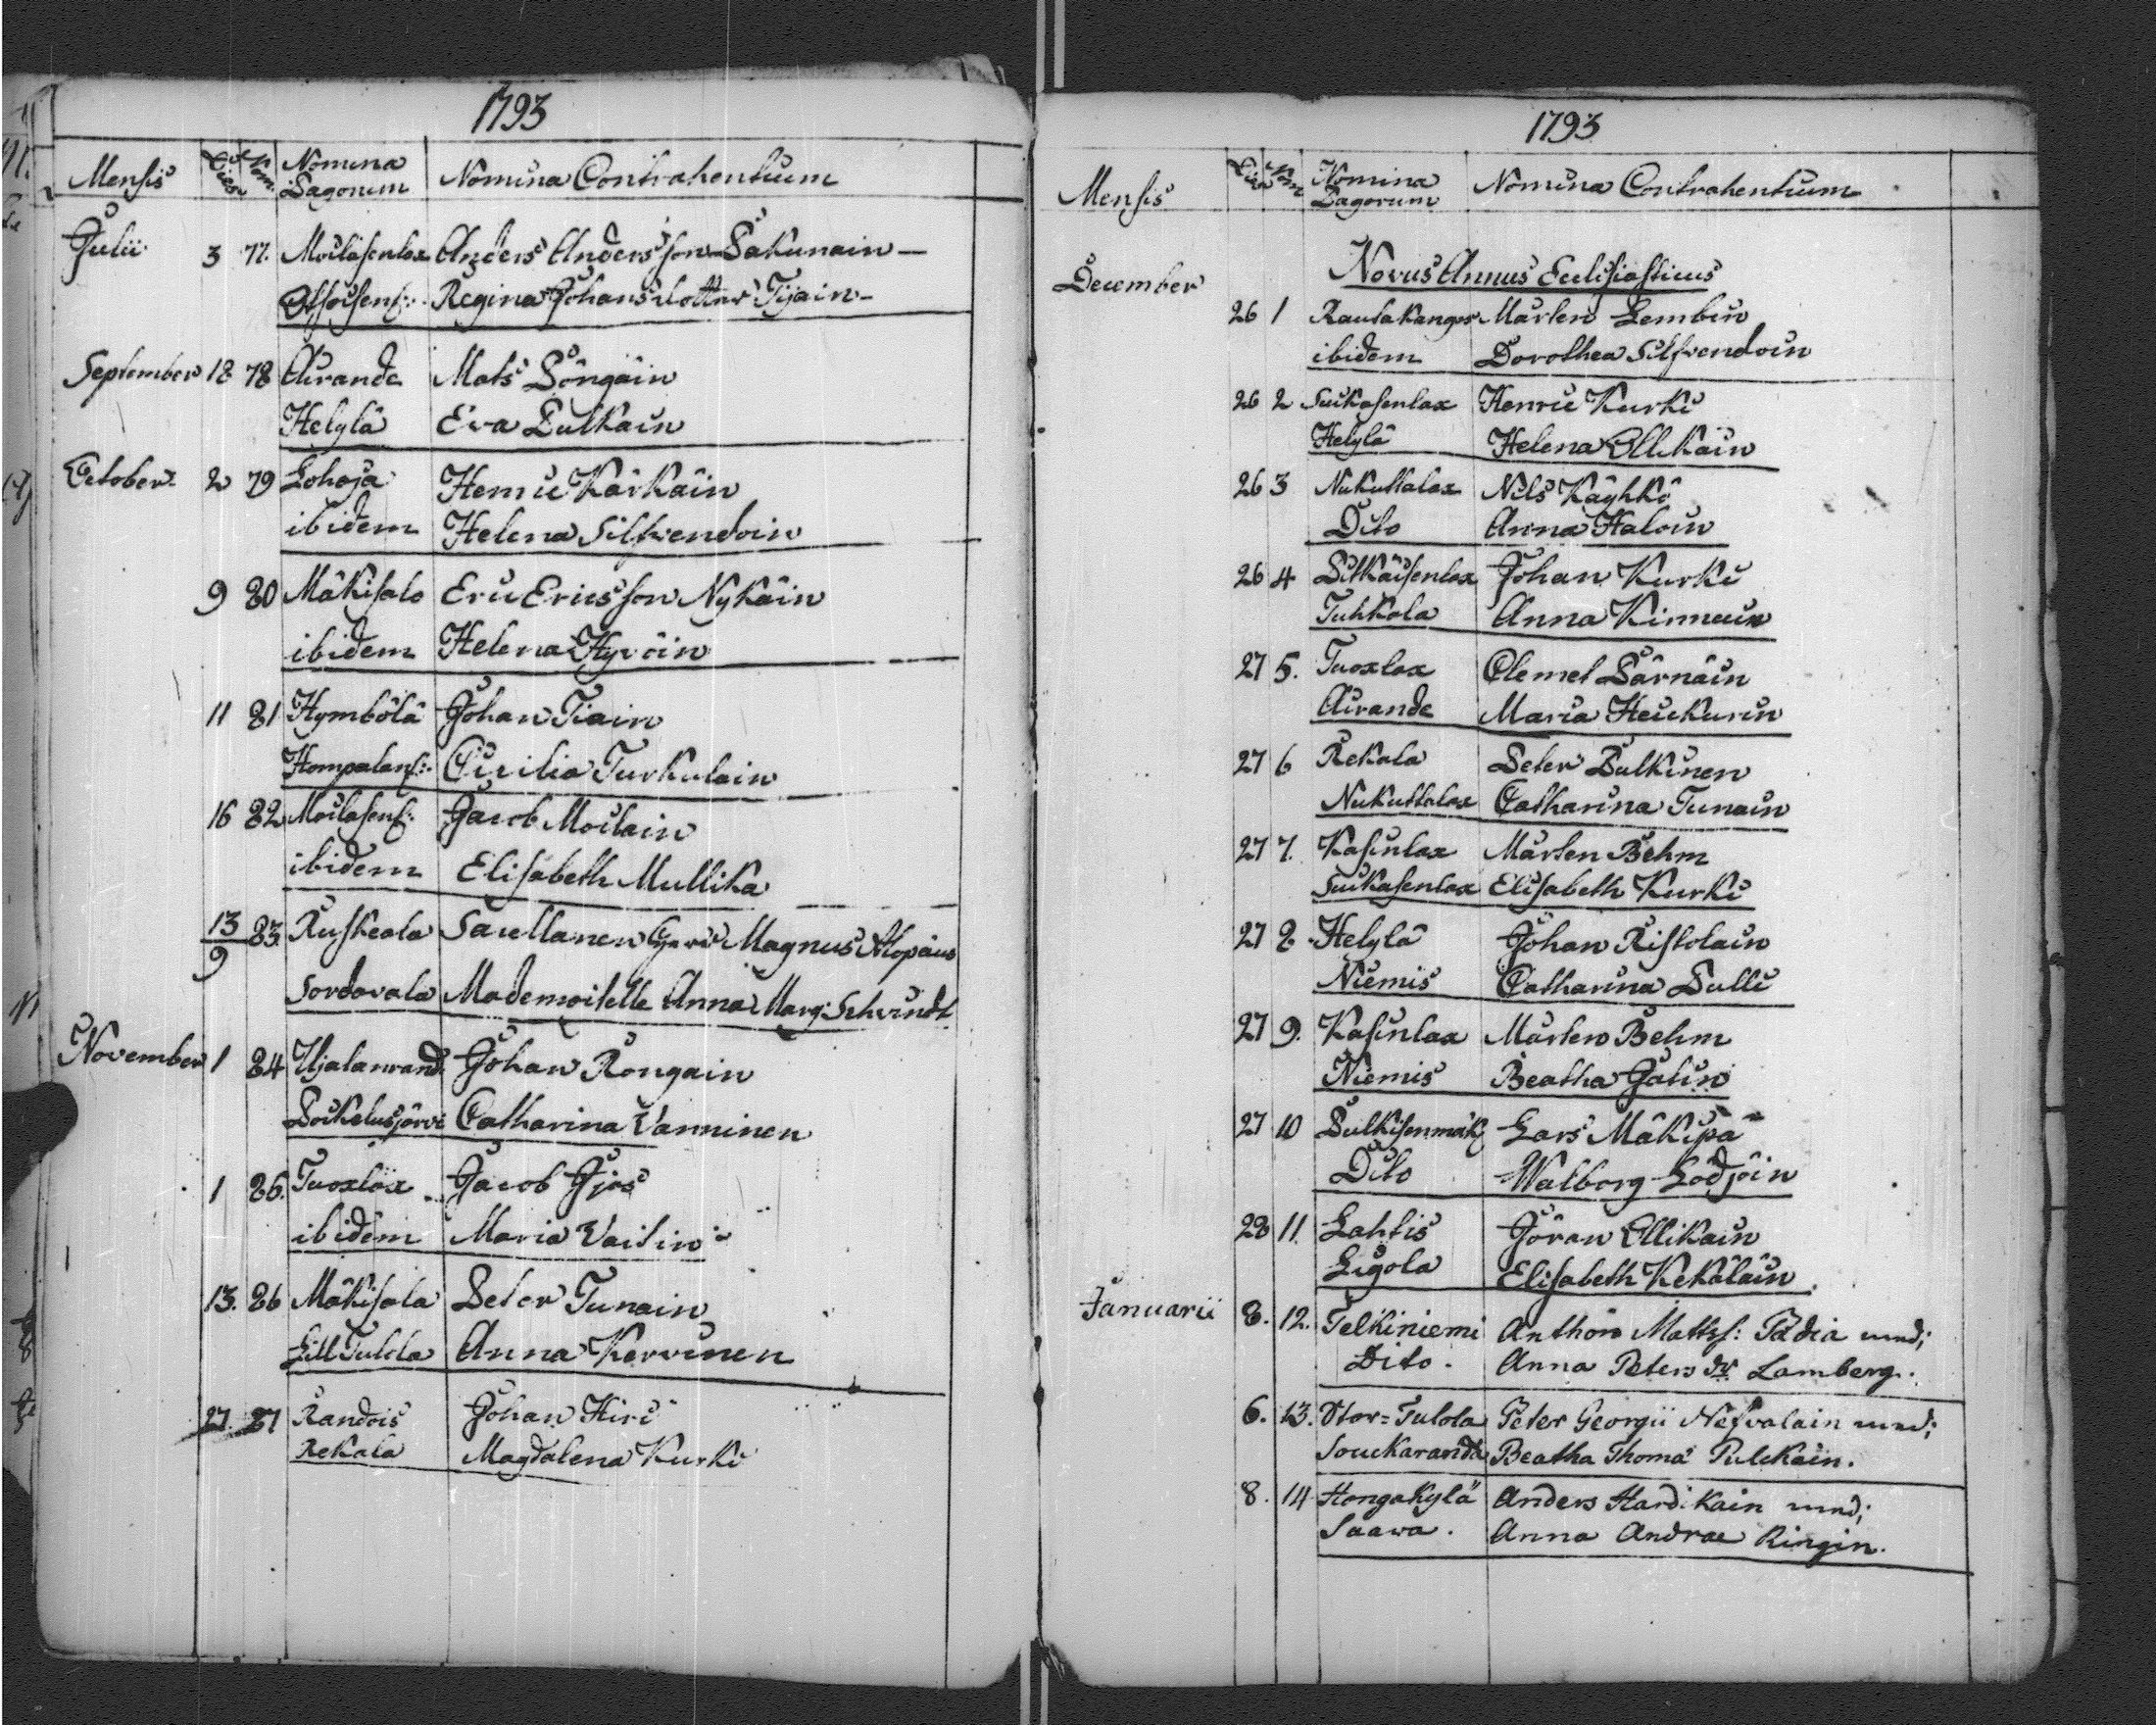 1793
Mensis Dies Nom. Nomina Pagorum Nomina Contrahentium
Julii 3 77. Moilasenlax Anders Andersson Pakunain —
Regina Johansdotter Tijain —
September 18 78 Airanda Mats Pöngäin
Helylä Eva Pulkain
October. 2 79 Lohoja Henric Kärkäin
ibidem Helena Silfvendoin
9 80 Mäkisalo Eric Ericsson Nykäin
ibidem Helena Hyvöin
11 81 Hymbölä Johan Tiain
Hompalans: Cicilia Turkulain
16 82 Moilasens: Jacob Moilain
ibidem Elisabeth Mullika
13/9 83. Ruskeala Sacellanen Magnus Alopæus
Sordavala Mademoiselle Anna Marg: Schvindt
November 1 84 Ujalanrand. Johan Rongain
Poikelusjärvi Catharina Vanninen
1 85. Tuoxlax Jacob Jjäs
ibidem Maria Vaitin
13. 86 Mäkisala Peter Tunain
Lill Tulola Anna Kervinen
27. 87 Randois Johan Hirs
Rekala Magdalena Kurki
1793
Mensis Dies Nom Nomina Pagorum Nomina Contrahentium
December Novus Annus Ecclesiasticus
26 1 Rautakangas Mårten Lembin
ibidem Dorothea Silfvendoin
26 2 Suikasenlax Henric Kurki
Helylä Helena Ollikain
26 3 Nukuttalax Nils Käyhkö
Dito Anna Haloin
26 4 Pitkäisenlax Johan Kurki
Tuhkola Anna Kinnuin
27 5. Tuoxlax Clemet Pärnäin
Airanda Maria Heickurin
27 6 Rekala Peter Pulkinen
Nukuttalax Catharina Tunain
27 7. Kasinlax Mårten Behm
Suikasenlax Elisabeth Kurki
27 8 Helylä Johan Ristolain
Niemis Catharina Pulli
27 9. Kasinlax Mårten Behm
Niemis Beatha Jatin
27 10 Pulkisenmäki Lars Mäkipä
Dito Walborg Lödjöin
28 11 Lahtis Jöran Ollikain
Ligola Elisabeth Kekäläin
Januarii 8. 12. Telkiniemi Anthon Mattss: Padia und;
Dito. Anna Peters dr Lamberg.
6. 13. Stor=Tulola Peter Georgii Nesvalain und;
Souckaranda Beatha Thomæ Pulckain.
8. 14 Hongakylä Anders Hardikain und;
Saava. Anna Andrae Ringin.